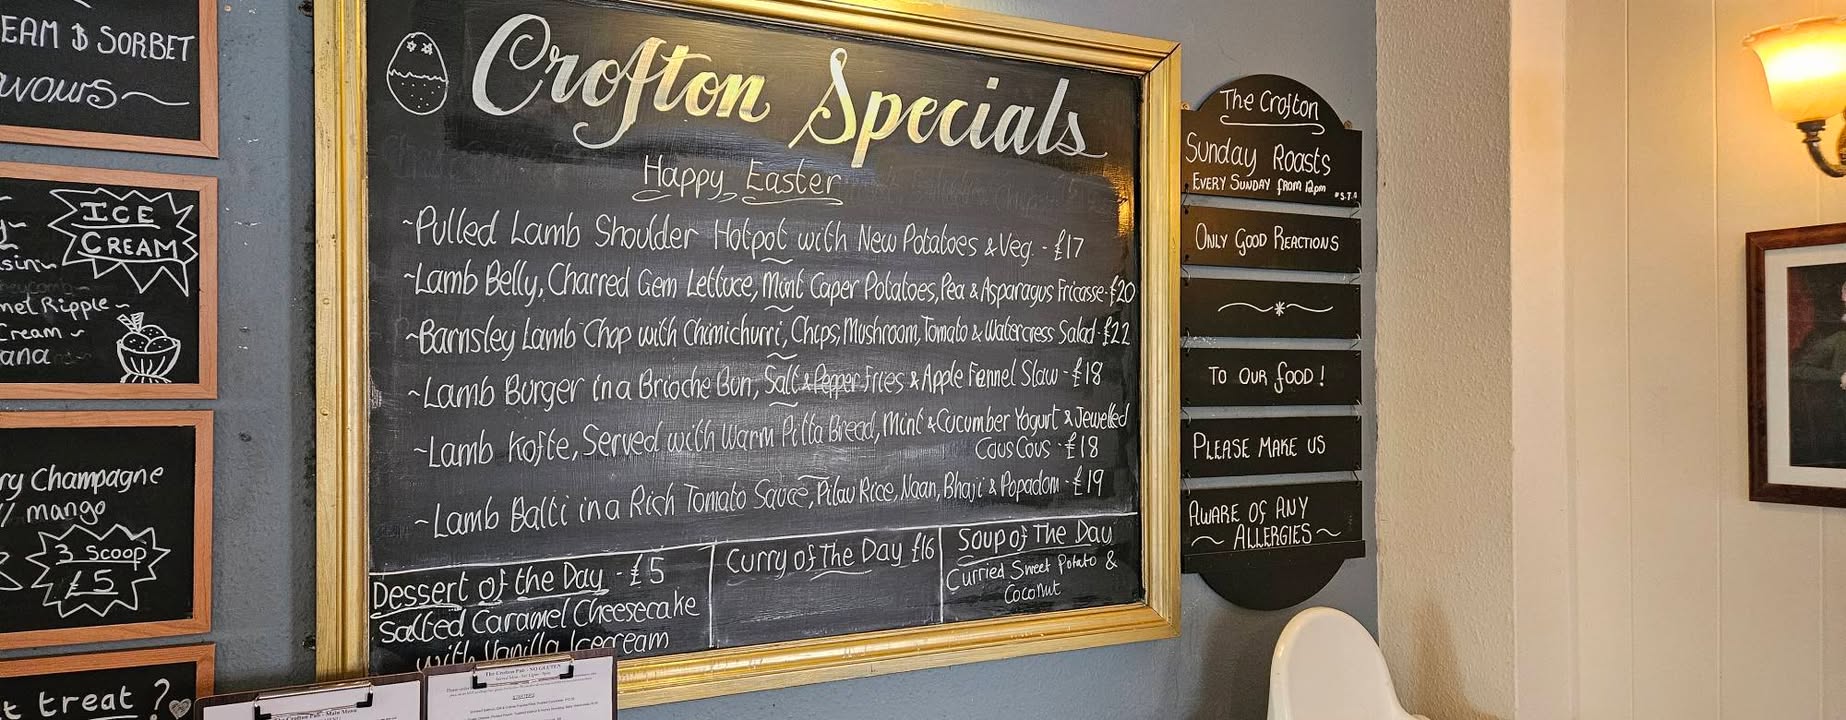 EAM & SORBET
avours
ICE
CREAM
met Ripple ~
Cream ~
ana
ry Champagne
mango
3 Scoop
£5
t treat?
Crofton Specials
Happy Easter
~Pulled Lamb Shoulder Hotpot with New Potatoes & Veg. - £17
~Lamb Belly, Charred Gem Lettuce, Mint Caper Potatoes, Pea & Asparagus Fricasse - £20
~Barnsley Lamb Chop with Chimichurri, Chips, Mushroom, Tomato & Watercress Salad - £22
~Lamb Burger in a Brioche Bun, Salt & Pepper Fries & Apple Fennel Slaw - £18
~Lamb Kofte, Served with Warm Pitta Bread, Mint & Cucumber Yogurt & Jewelled
Cous Cous - £18
~Lamb Balti in a Rich Tomato Sauce, Pilau Rice, Naan, Bhaji & Popadom - £19
Dessert of the Day - £5
Salted Caramel Cheesecake
with Vanilla Icecream
Curry of The Day £16
Soup of The Day
Curried Sweet Potato &
Coconut
The Crofton
Sunday Roasts
EVERY SUNDAY FROM 12pm
ONLY GOOD REACTIONS
TO OUR FOOD!
PLEASE MAKE US
AWARE OF ANY
~ ALLERGIES ~
The Crofton Pub - Main Menu
The Crofton Pub - NO GLUTEN